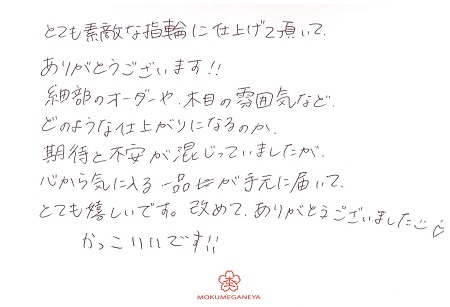 とても素敵な指輪に仕上げて頂いて、
ありがとうございます!!
細部のオーダーや、木目の雰囲気など、
どのような仕上がりになるのか、
期待と不安が混じっていましたが、
心から気に入る一品が手元に届いて、
とても嬉しいです。改めて、ありがとうございました♡
かっこいいです!!
MOKUMEGANEYA